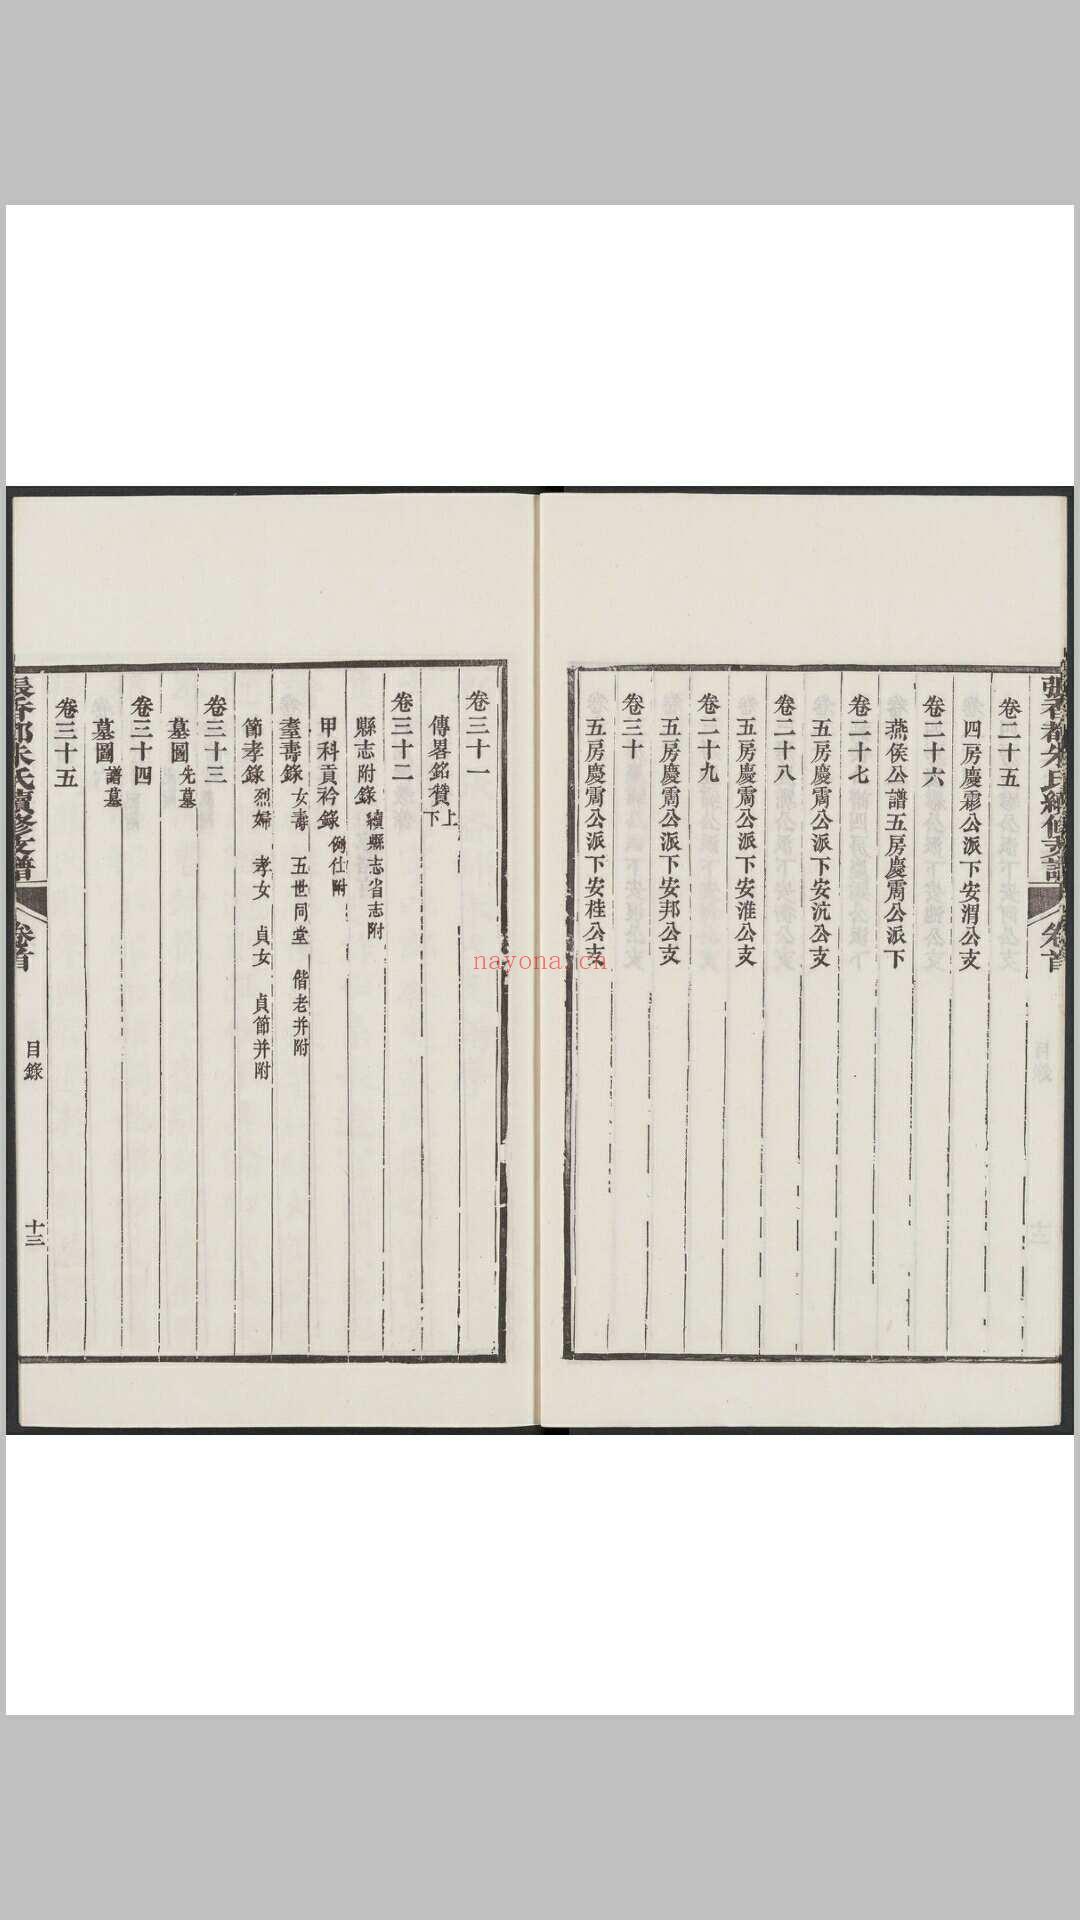 張香都朱氏續修支譜 卷首
卷二十五
四房慶霗公派下安渭公支
卷二十六
燕侯公譜五房慶霌公派下
卷二十七
五房慶霌公派下安沆公支
卷二十八
五房慶霌公派下安淮公支
卷二十九
五房慶霌公派下安邦公支
卷三十
五房慶霌公派下安桂公支
卷三十一
傳畧銘贊上下
卷三十二
縣志附錄續縣志省志附
甲科貢衿錄例仕附
耋壽錄女壽 五世同堂 偕老并附
節孝錄烈婦 孝女 貞女 貞節并附
卷三十三
墓圖先墓
卷三十四
墓圖譜墓
卷三十五
張香都朱氏續修支譜 卷首 目錄 十三
nayona.cn